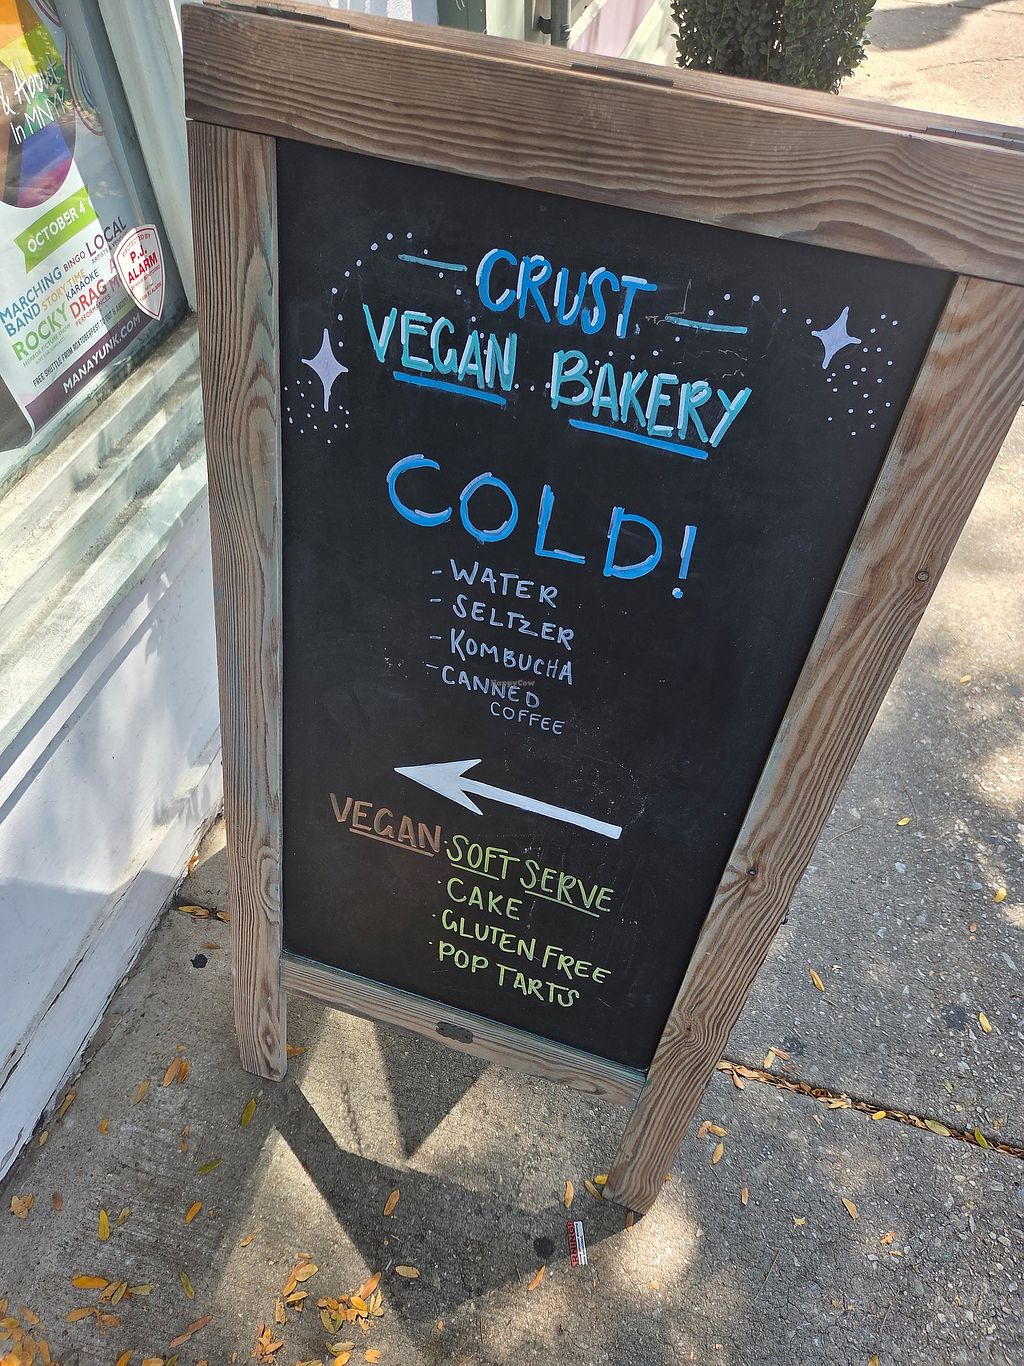 & About
In MNYK
OCTOBER 4
MARCHING
BAND
BINGO
LOCAL
STORY TIME
KARAOKE
ROCKY
DRAG
PERFORMANCES
MANAYUNK.COM
PROTECTED BY
P.J.
ALARM
CRUST
VEGAN BAKERY
COLD!
- WATER
- SELTZER
- KOMBUCHA
- CANNED
COFFEE
HappyCow
VEGAN · SOFT SERVE
· CAKE
· GLUTEN FREE
· POP TARTS